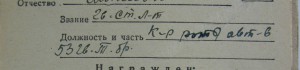 Отчество
Звание Гв. Ст. Л-т
Должность и часть К-р роты авт-в
53 гв. Т. бр.
Награжден